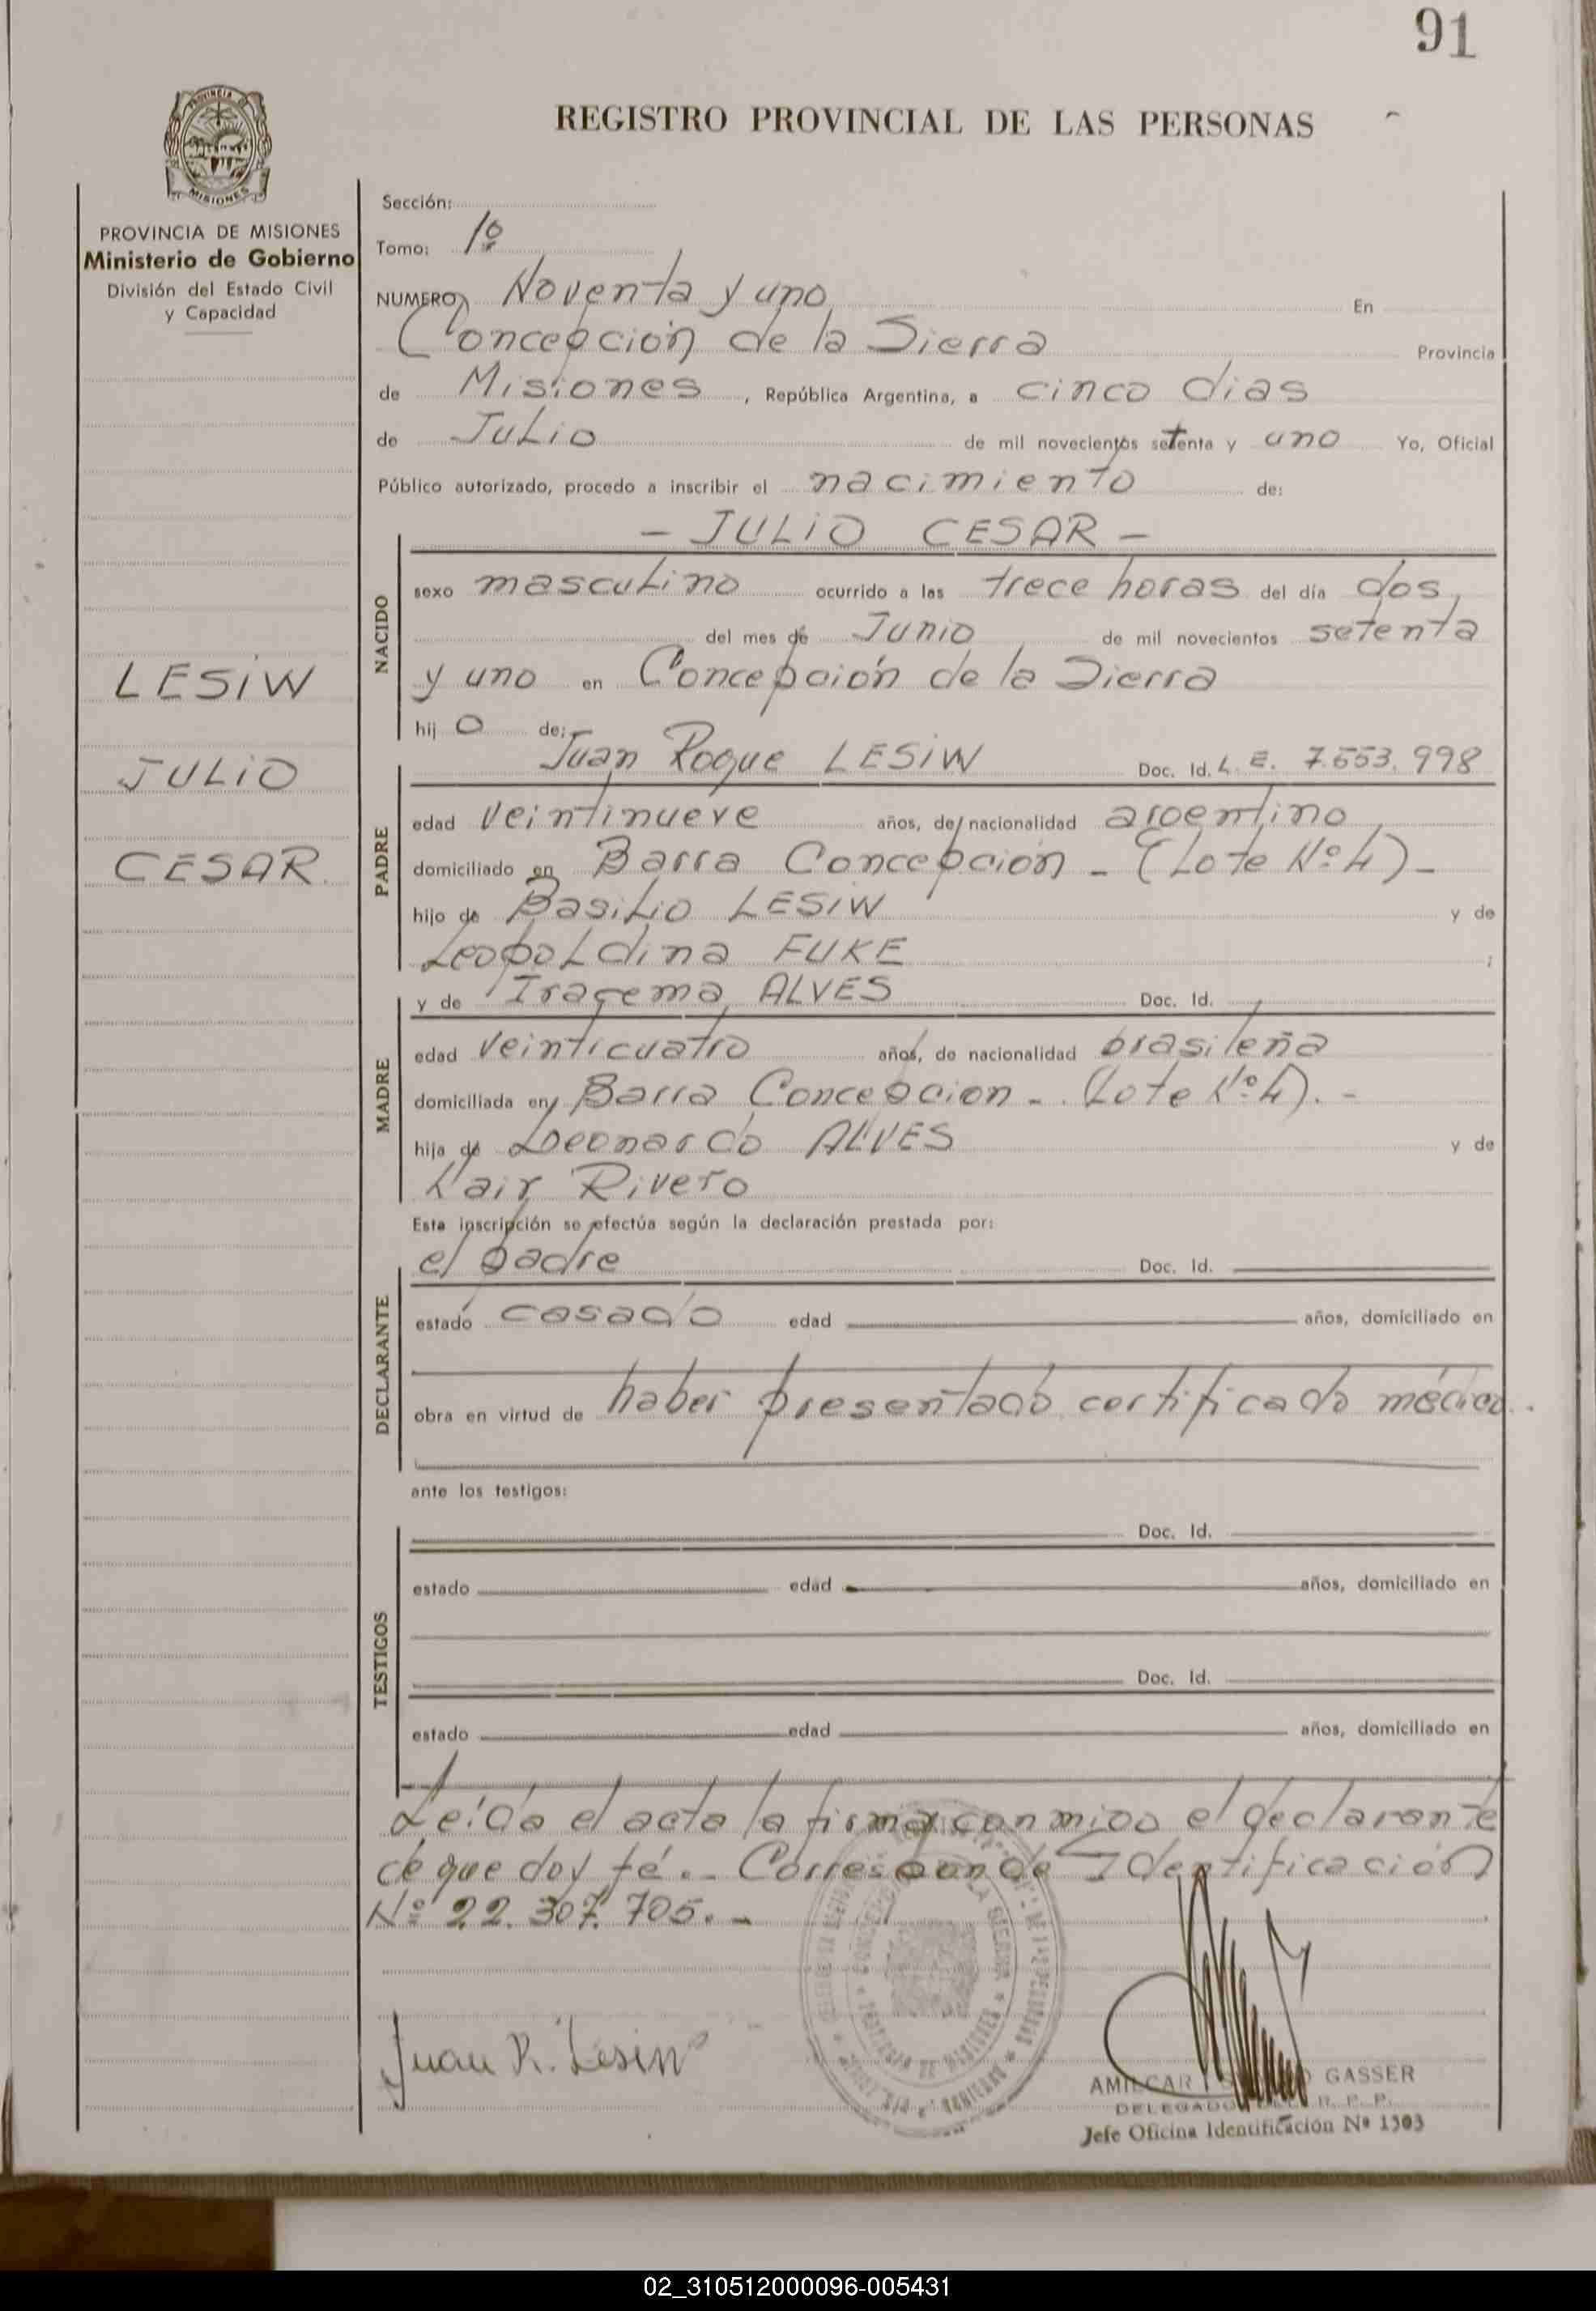 91
REGISTRO PROVINCIAL DE LAS PERSONAS
PROVINCIA DE
MISIONES
PROVINCIA DE MISIONES
Ministerio de Gobierno
División del Estado Civil
y Capacidad
LESIW
JULIO
CESAR
Sección:
Tomo: 1º
NUMERO Noventa y uno En
Concepción de la Sierra Provincia
de Misiones, República Argentina, a cinco dias
de Julio de mil novecientos setenta y uno Yo, Oficial
Público autorizado, procedo a inscribir el nacimiento de:
- JULIO CESAR -
NACIDO
sexo masculino ocurrido a las trece horas del día dos
del mes de Junio de mil novecientos setenta
y uno en Concepción de la Sierra
hij o de:
PADRE
Juan Roque LESIW Doc. Id. L. E. 7.553.998
edad veintinueve años, de nacionalidad argentino
domiciliado en Barra Concepción - (Lote Nº 4) -
hijo de Basilio LESIW y de
Leopoldina FUKE ;
MADRE
y de Iracema ALVES Doc. Id.
edad veinticuatro años, de nacionalidad brasileña
domiciliada en Barra Concepcion - (Lote Nº 4). -
hija de Leonardo ALVES y de
Nair Rivero
Esta inscripción se efectúa según la declaración prestada por:
DECLARANTE
el padre Doc. Id.
estado casado edad años, domiciliado en
obra en virtud de haber presentado certificado médico.
ante los testigos:
TESTIGOS
Doc. Id.
estado edad años, domiciliado en
Doc. Id.
estado edad años, domiciliado en
Leida el acta la firma conmigo el declarante
de que doy fé.- Corresponde Identificación
Nº 22.307.705. -
Juan R. Lesiw
AMILCAR GASSER
DELEGADO R. P. P.
Jefe Oficina Identificación Nº 1303
02_310512000096-005431